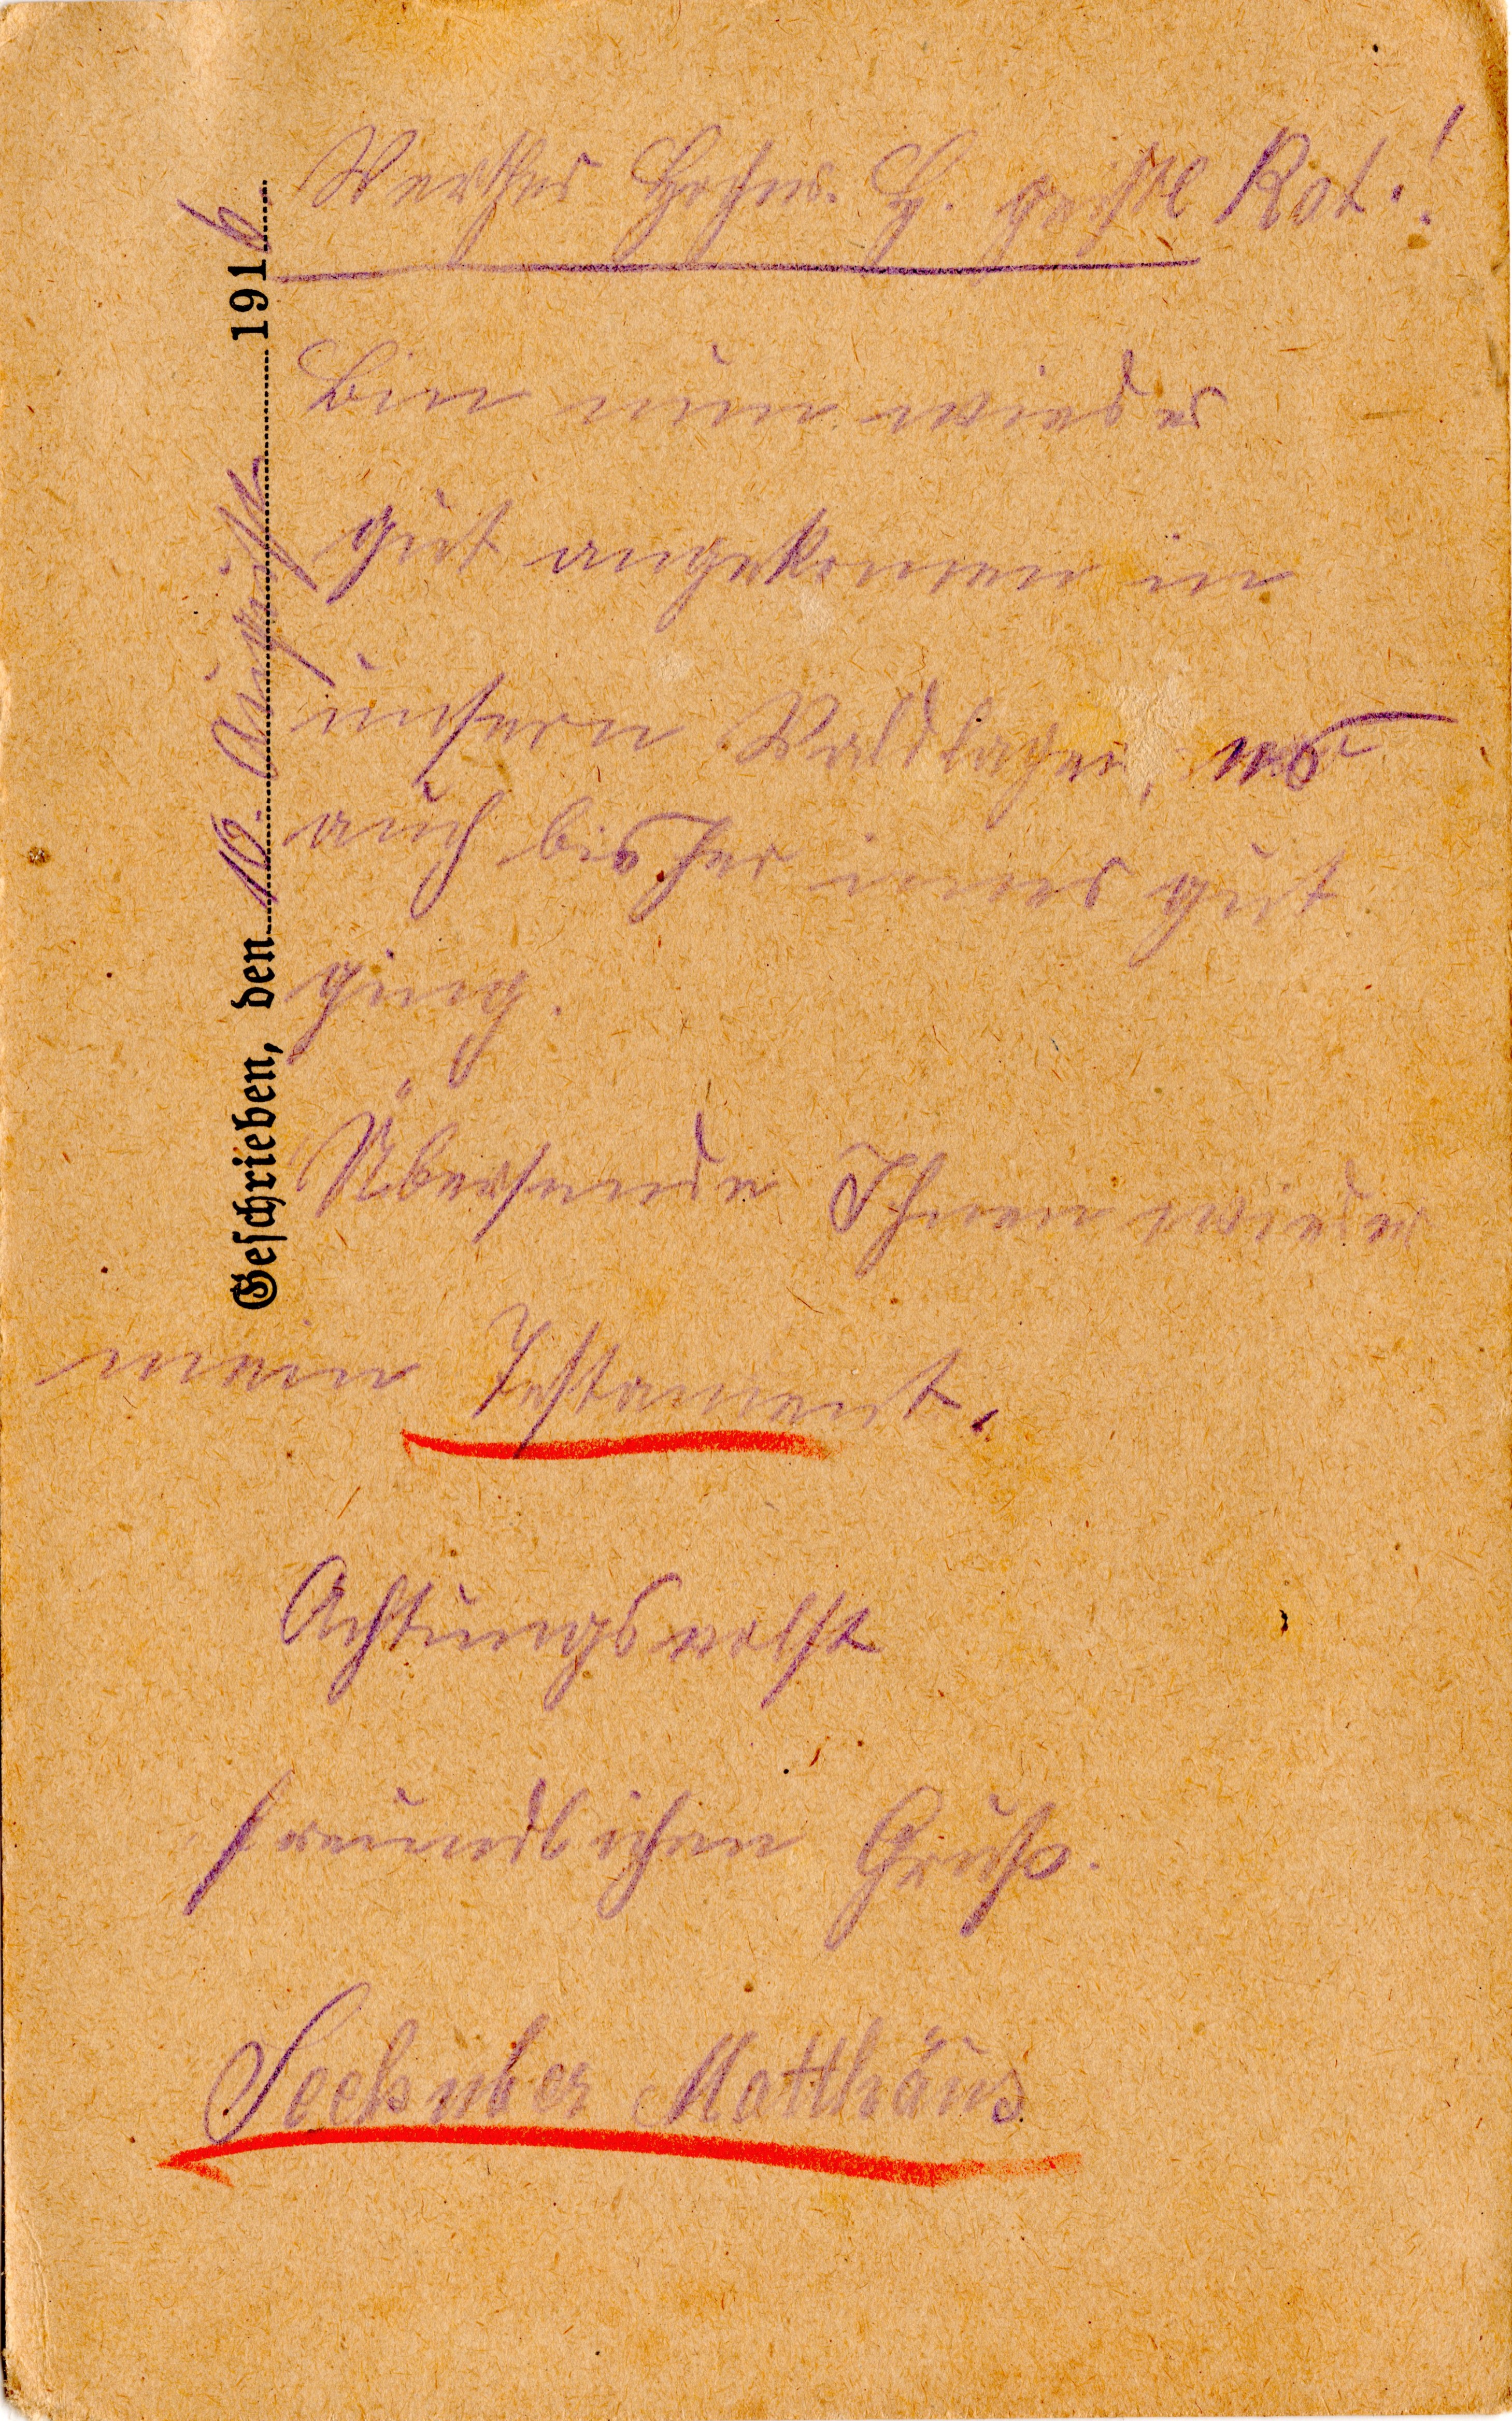 Geschrieben, den 10. August 1916
Werther Hochw. H. geistl Rat.!
Bin nun wieder
gut angekommen in
unsern Waldlager, wo
auch bisher immer gut
ging.
Übersende Ihnen wieder
mein Testament.
Achtungsvollst
freundlichen Gruß.
Matthäus